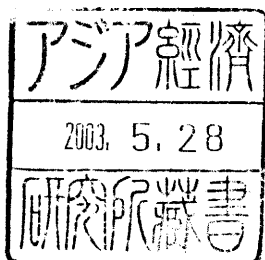 アジア經濟
2003. 5. 28
研究所藏書